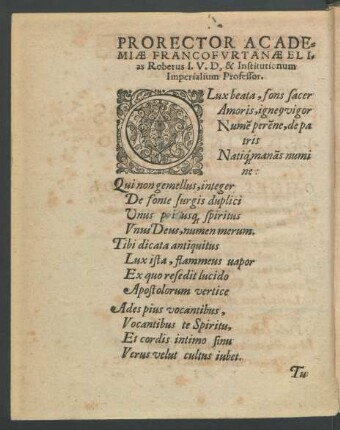 PRORECTOR ACADE-
MIÆ FRANCOFVRTANÆ ELI-
as Reberus I. V. D, & Institutionum
Imperialium Professor.
O Lux beata, fons sacer
Amoris, igneq́; vigor
Numẽ perẽne, de pa
tris
Natiq́; manãs numi
ne:
Qui non gemellus, integer
De fonte surgis duplici
Vnus utriusq; spiritus
Vnus Deus, numen merum.
Tibi dicata antiquitus
Lux ista, flammeus uapor
Ex quo resedit lucido
Apostolorum vertice
Ades pius vocantibus,
Vocantibus te Spiritu,
Et cordis intimo sinu
Verus velut cultus iubet.
Tu